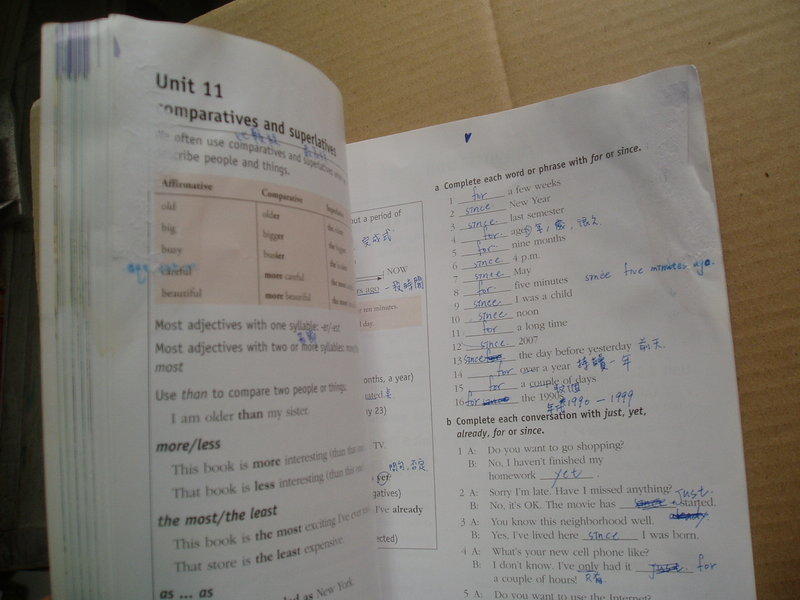 Unit 11
comparatives and superlatives
often use comparatives and superlatives
people and things.
Affirmative Comparative
old older
big bigger
busy busier
careful more careful
beautiful more beautiful
Most adjectives with one syllable: -er/-est
Most adjectives with two or more syllables:
most
Use than to compare two people or things:
I am older than my sister.
more/less
This book is more interesting (than this
That book is less interesting (than this
the most/the least
This book is the most exciting I've ever
That store is the least expensive.
as ... as
as New York
out a period of
完成式
NOW
ago 一段時間
ten minutes.
day.
onths, a year)
ated
y 23)
TV.
yet 問句, 否定
gatives)
I've already
ected)
a Complete each word or phrase with for or since.
1 for a few weeks
2 since New Year
3 since last semester
4 for ages
5 for nine months
6 since 4 p.m.
7 since May
8 for five minutes since five minutes ago.
9 since I was a child
10 since noon
11 for a long time
12 since 2007
13 since the day before yesterday 前天
14 for over a year 持續一年
15 for a couple of days
16 for since the 1990s 1990 - 1999
b Complete each conversation with just, yet,
already, for or since.
1 A: Do you want to go shopping?
B: No, I haven't finished my
homework yet.
2 A: Sorry I'm late. Have I missed anything? just.
B: No, it's OK. The movie has since started.
already
3 A: You know this neighborhood well.
B: Yes, I've lived here since I was born.
4 A: What's your new cell phone like?
B: I don't know. I've only had it just for
a couple of hours! 只有
5 A: Do you want to use the Internet?